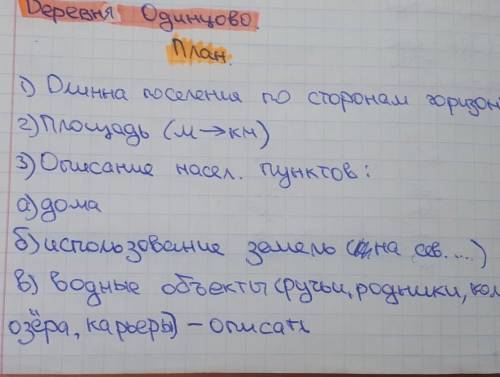 Деревня Одинцово.
План.
1) Длинна поселения по сторонам горизон
2) Площадь (м→км)
3) Описание насел. пунктов:
а) дома
б) использование земель (на сев. ...)
в) водные объекты (ручьи, родники, кол
озёра, карьеры) – описать